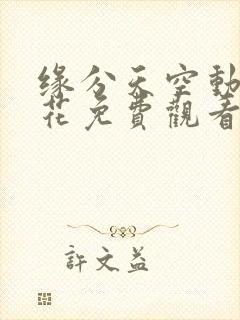 缘分天空動
花免費觀看
許文益